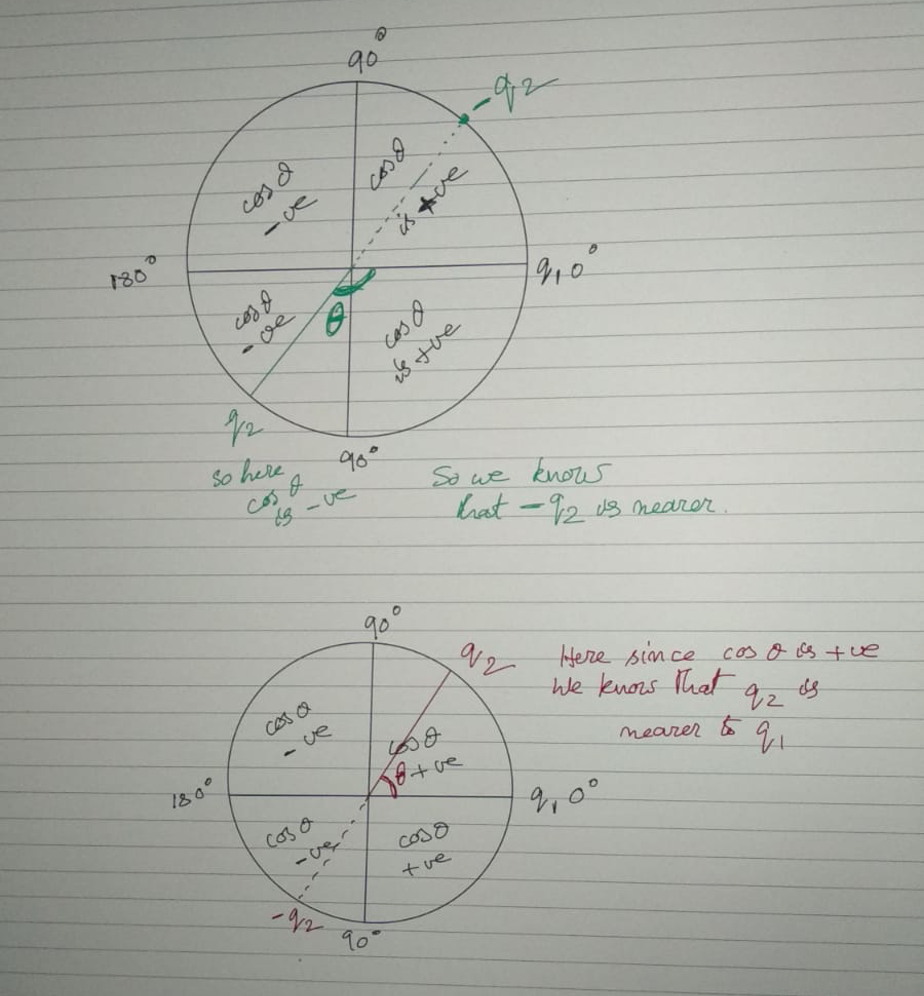 90°
-q2
cosθ
-ve
cosθ
is +ve
180°
q1 0°
cosθ
-ve
θ
cosθ
is +ve
q2
90°
so here
cosθ
is -ve
So we knows
that -q2 is nearer.
90°
q2
Here since cosθ is +ve
We knows that q2 is
nearer to q1
cosθ
-ve
cosθ
θ +ve
180°
q1 0°
cosθ
-ve
cosθ
+ve
-q2
90°